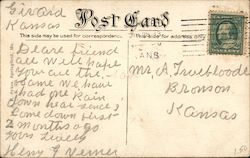 Girard
Kansas
Post Card
This side may be used for correspondence.
This side for address only.
KANS
Deare friend
all well hope
you are the
same we have
had one Rain
down hear since I
Come down hear
2 months ago
Yors Truely
Henry J Verner
Mr. A. Trueblood
Bronson
Kansas
150